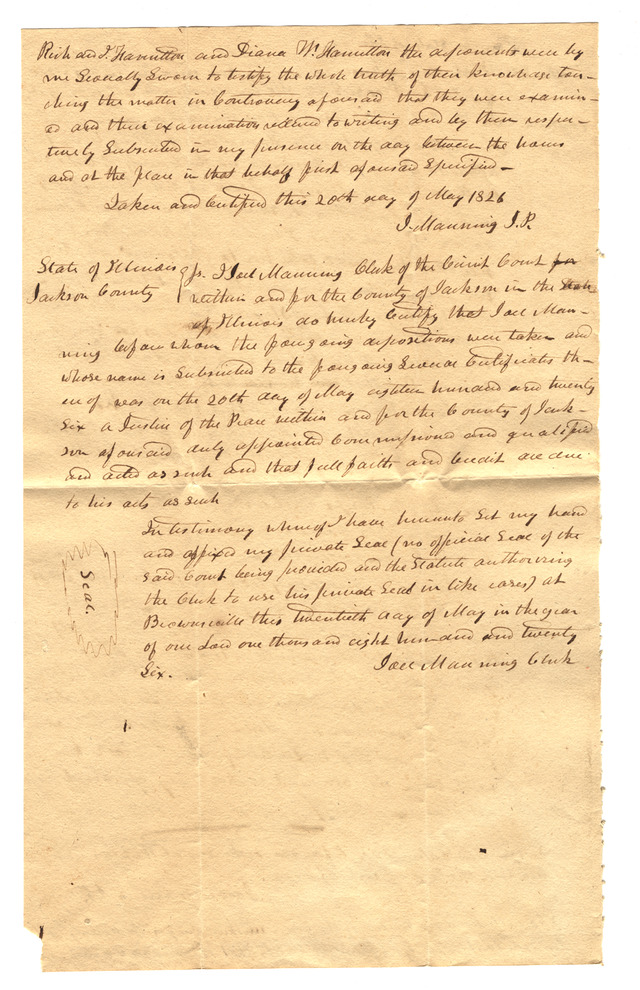 Richard J. Hamilton and Diana W. Hamilton the deponents were by
me Severally Sworn to testify the whole truth of their knowledge tou-
ching the matter in Controversy aforesaid that they were examin-
ed and their examination reduced to writing and by them respec-
tively Subscribed in my presence on the day between the hours
and at the place in that behalf first aforesaid Specified -
Taken and Certified this 20th day of May 1826
J. Manning J.P.
State of Illinois
Jackson County
ss. I Joel Manning Clerk of the Circuit Court for
within and for the County of Jackson in the State
of Illinois do hereby Certify that Joel Man-
ning before whom the foregoing depositions were taken and
whose name is Subscribed to the foregoing Several Certificates th-
ereof was on the 20th day of May eighteen hundred and twenty
Six a Justice of the Peace within and for the County of Jack-
son aforesaid duly appointed Commissioned and qualified
and acted as such and that full faith and Credit are due
to his acts as such
In testimony whereof I have hereunto Set my hand
and affixed my private Seal (no official Seal of the
said Court being provided and the Statute authorizing
the Clerk to use his private Seal in like cases) at
Brownsville this twentieth day of May in the year
of our Lord one thousand eight hundred and twenty
Six.
Joel Manning Clerk
Seal.